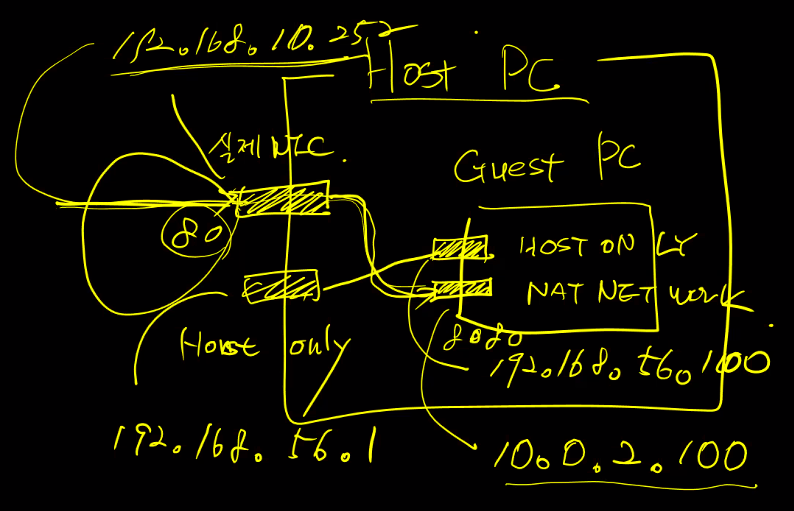 192.168.10.252
Host PC
실제 NIC.
Guest PC
80
HOST ONLY
NAT NETWORK
Host only
8080
192.168.56.100
192.168.56.1
10.0.2.100